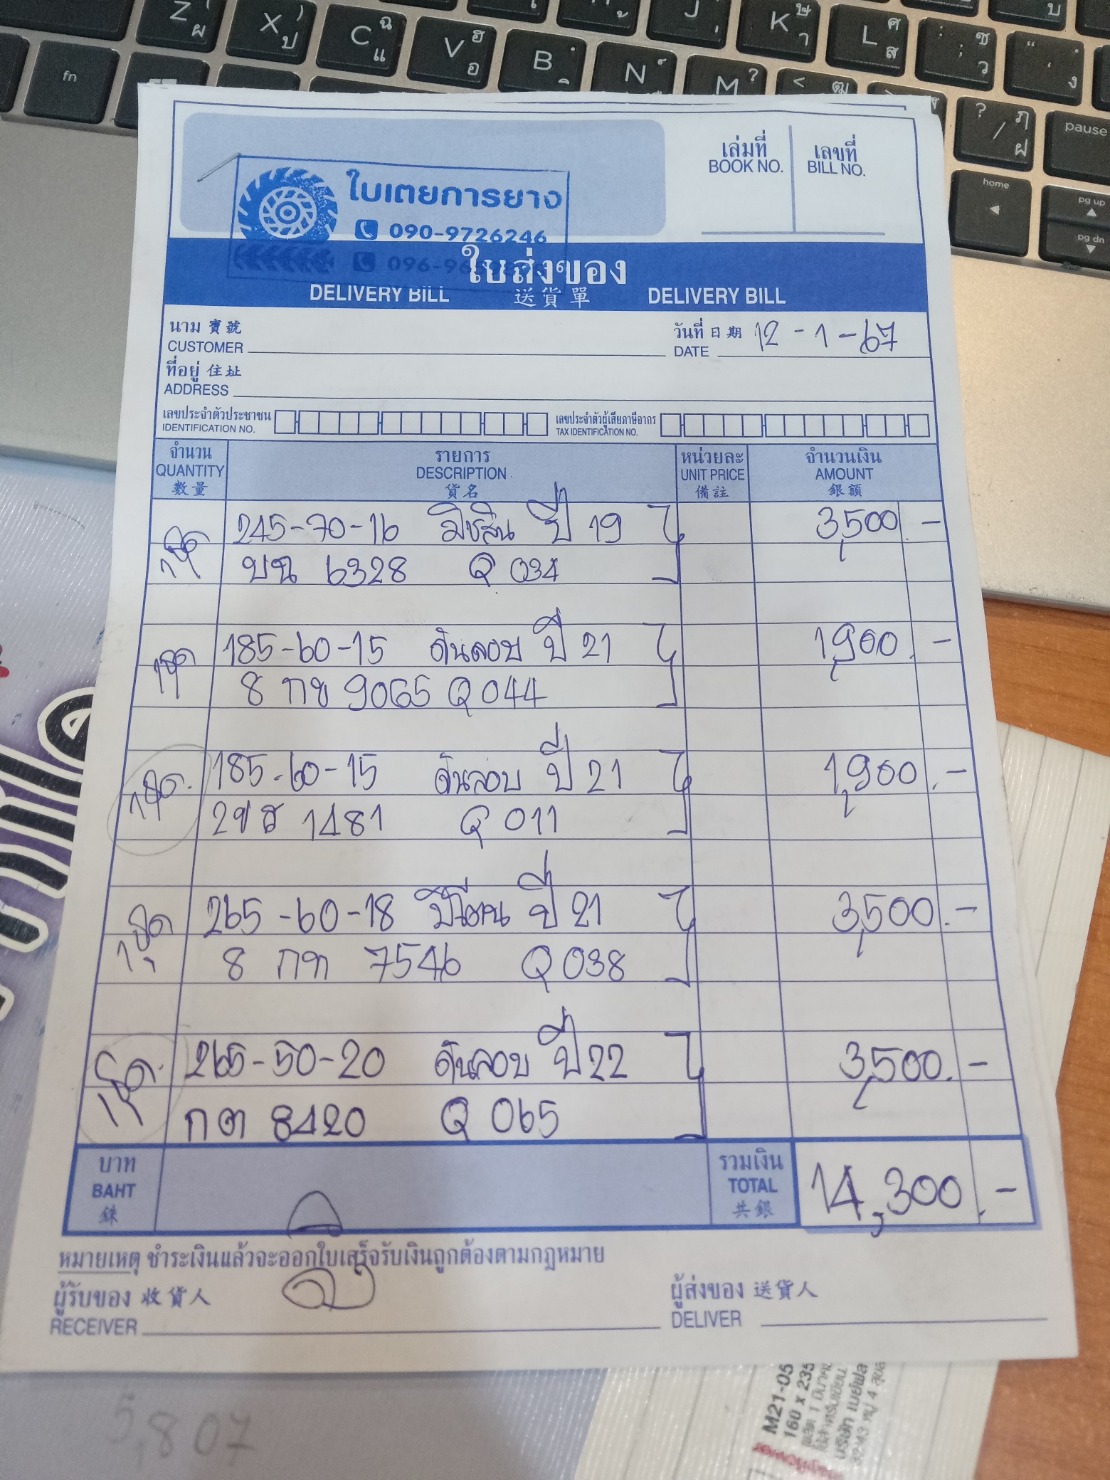 Z ผ X ป C แ V อ B N M ? K า L ศ ส ; ซ ว ง
fn
? / ฦ ฝ pause
home
pg up
pg dn
เล่มที่ เลขที่
BOOK NO. BILL NO.
ใบเตยการยาง
090-9726246
096-9
ใบส่งของ
DELIVERY BILL 送貨單 DELIVERY BILL
นาม 寶號
CUSTOMER
วันที่ 日期 12-1-67
DATE
ที่อยู่ 住址
ADDRESS
เลขประจำตัวประชาชน เลขประจำตัวผู้เสียภาษีอากร
IDENTIFICATION NO. TAX IDENTIFICATION NO.
จำนวน รายการ หน่วยละ จำนวนเงิน
QUANTITY DESCRIPTION UNIT PRICE AMOUNT
數量 貨名 備註 銀額
245-70-16 มิชลิน ปี 19 3,500.-
6328 Q 034
1ชุด 185-60-15 ดันลอบ ปี 21 1,900.-
8 กข 9065 Q 044
1ชุด 185-60-15 ดันลอบ ปี 21 1,900.-
1481 Q 011
1ชุด 265-60-18 ปี 21 3,500.-
8 กท 7546 Q 038
265-50-20 ดันลอบ ปี 22 3,500.-
กต 8420 Q 065
บาท รวมเงิน
BAHT TOTAL 14,300.-
銖 共銀
หมายเหตุ ชำระเงินแล้วจะออกใบเสร็จรับเงินถูกต้องตามกฎหมาย
ผู้รับของ 收貨人 ผู้ส่งของ 送貨人
RECEIVER DELIVER
M21-05
160 x 235
5,807